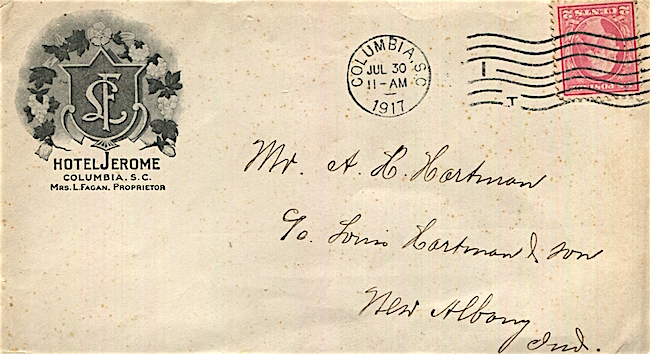 LF
HOTEL JEROME
COLUMBIA, S.C.
MRS. L. FAGAN, PROPRIETOR
COLUMBIA, S.C.
JUL 30
11-AM
1917
1
T
2 CENTS 2
Mr. A. H. Hartman
c/o. Louis Hartman & Son
New Albany
Ind.